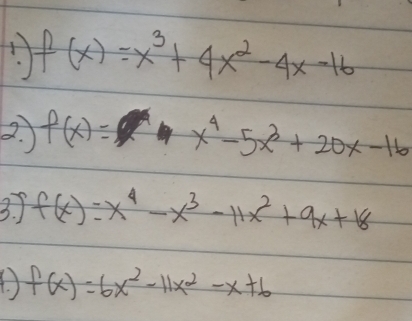 1.) f(x) = x³ + 4x² - 4x - 16
2.) f(x) = x⁴ - 5x³ + 20x - 16
3.) f(x) = x⁴ - x³ - 11x² + 9x + 18
4.) f(x) = 6x² - 11x² - x + 6